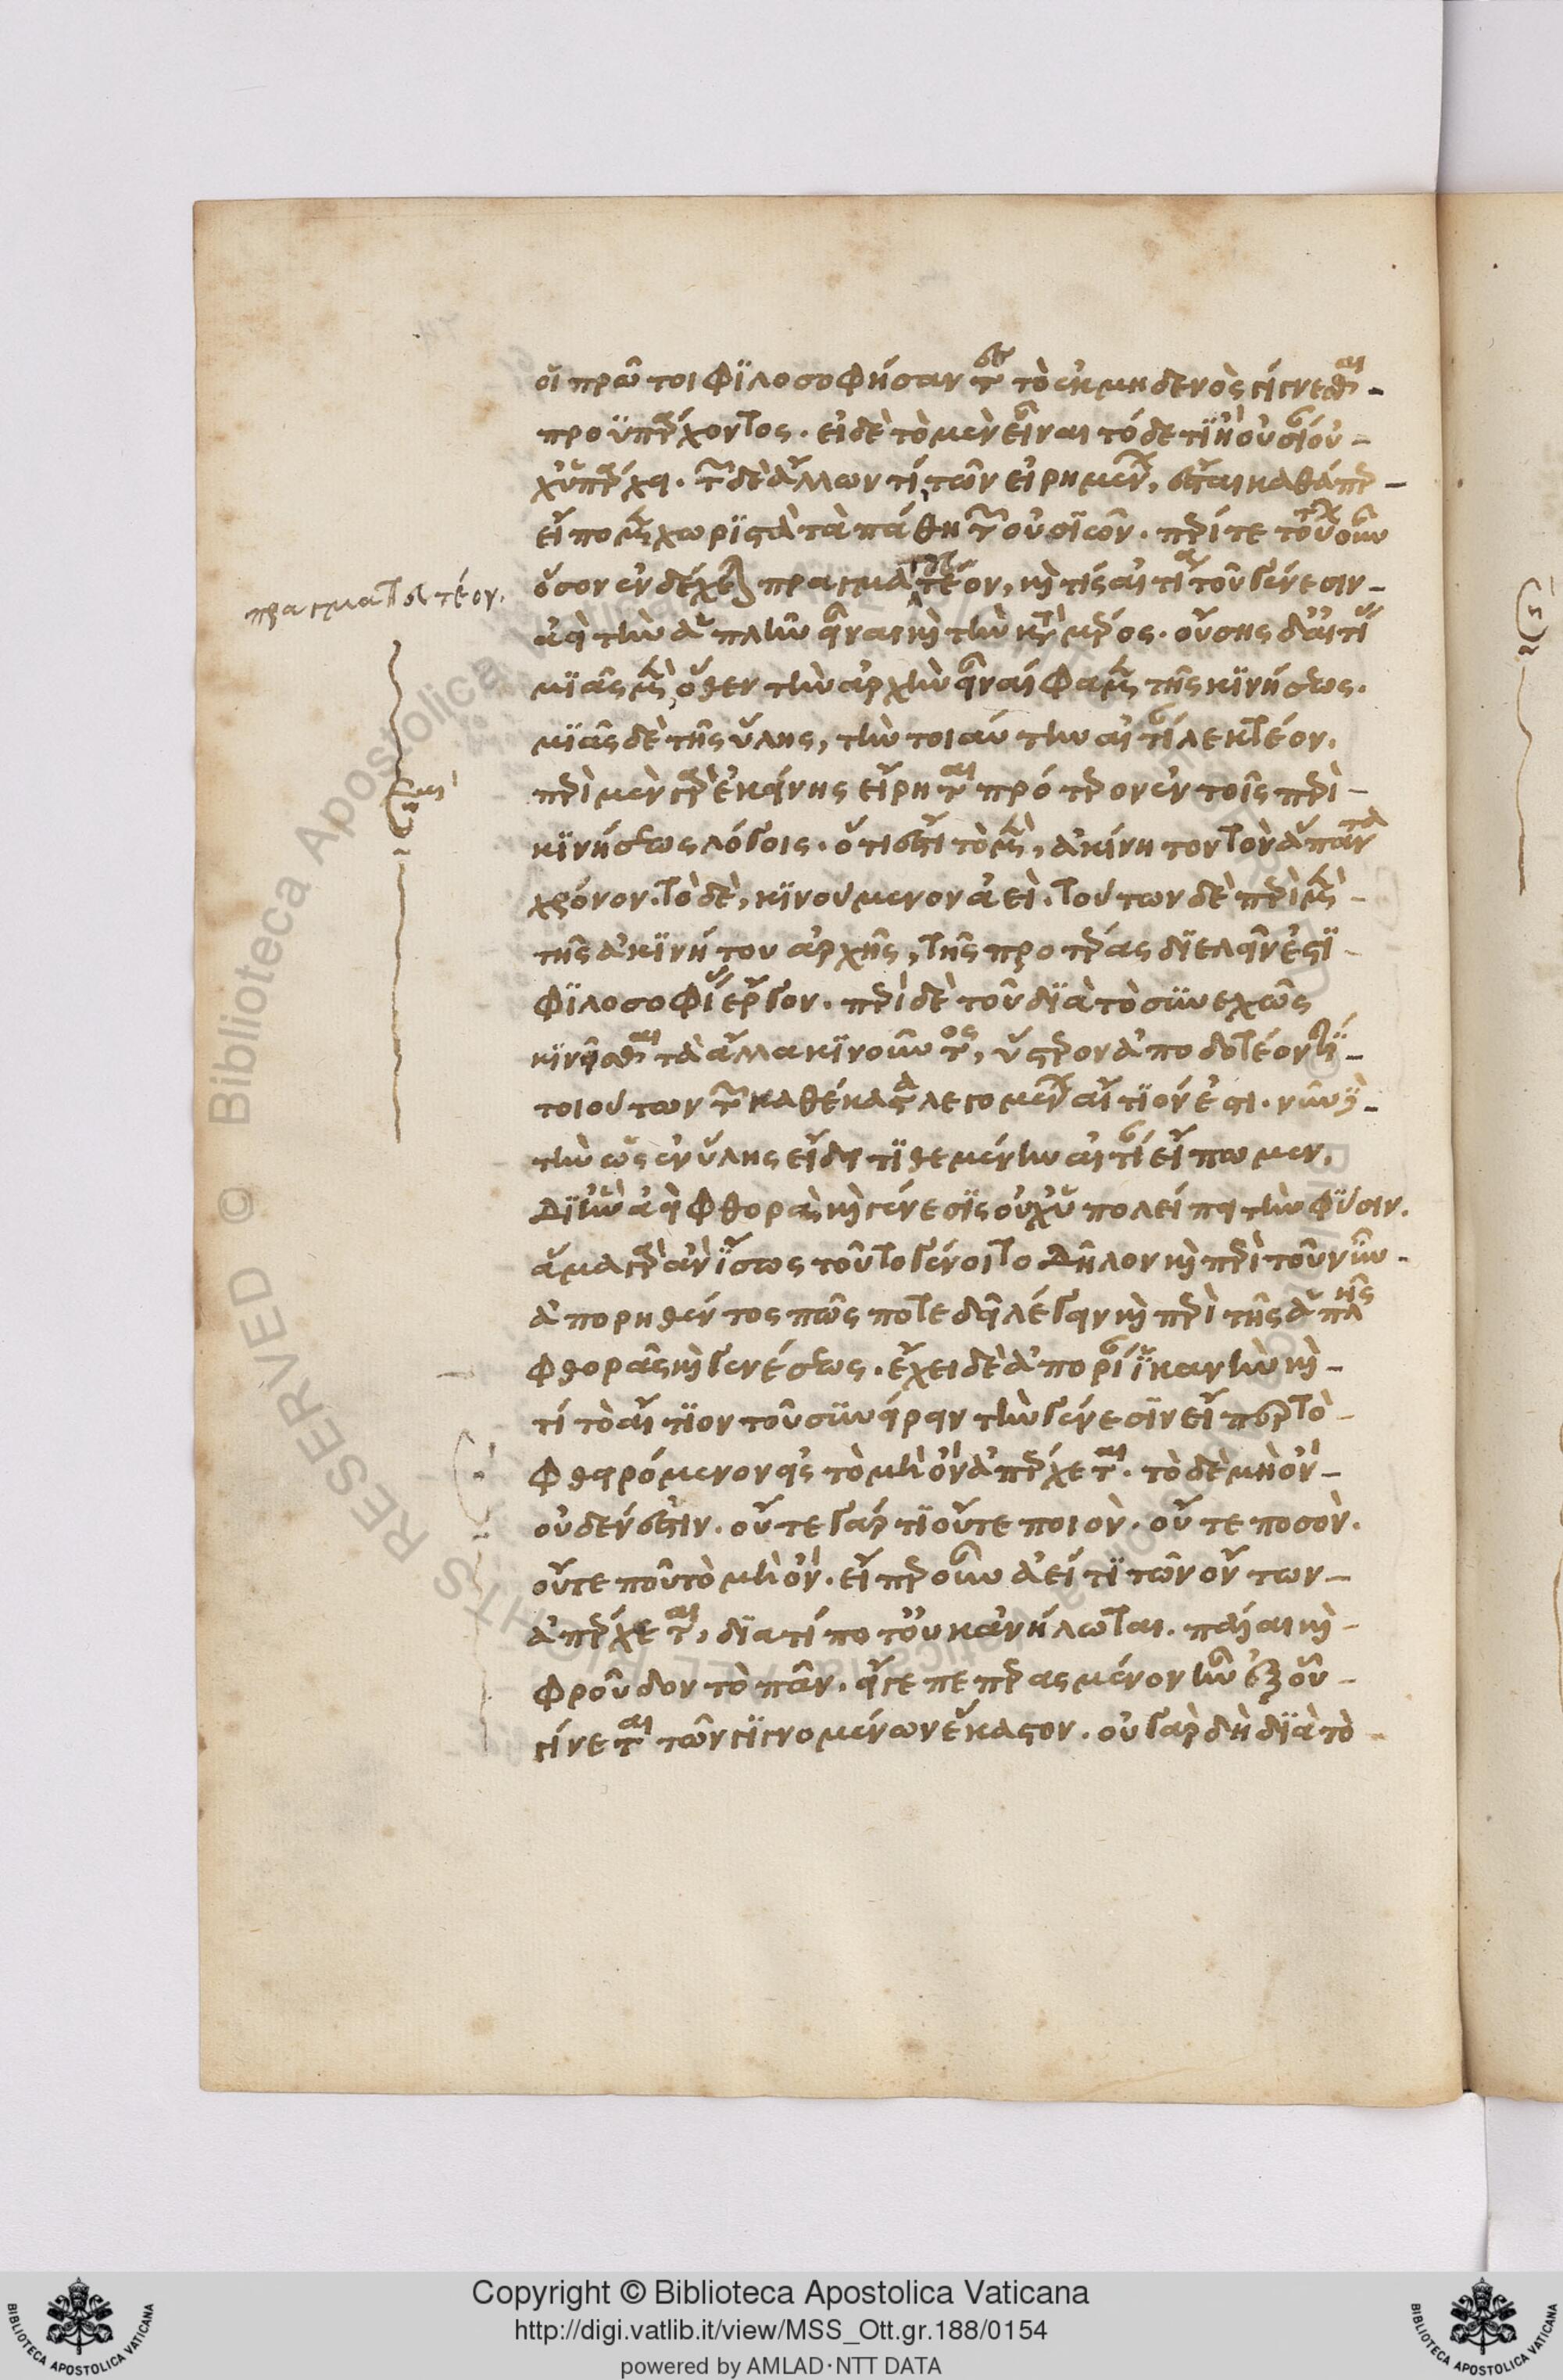 οἱ πρῶτοι φϊλοσοφήσαντες τὸ ἐκ μηδενὸς γίγνεσθαι
προϋπάρχοντος. εἰ δὲ τὸ μὲν εἶναι τόδε τϊ ἢ οὐσίαν οὐ-
χ ὑπάρξει. τῶν δὲ ἄλλων τί τῶν εἰρημένων, ἔσται καθάπερ
εἴπομεν χωρϊστὰ τὰ πάθη τῶν οὐσϊῶν. περί τε τούτων οὖν
ὅσον ἐνδέχεται πραγματευτέον, καὶ τίς αἰτία τοῦ γένεσιν
πραγματευτέον.
ἀεὶ τὴν ἁπλῆν εἶναι καὶ τὴν κατὰ μέρος. οὔσης δ' αἰτίας
μϊᾶς μὲν, ὅθεν τὴν ἀρχὴν εἶναί φαμεν τῆς κϊνήσεως.
μϊᾶς δὲ τῆς ὕλης, τὴν τοιαύτην αἰτίαν λεκτέον.
περὶ μὲν γὰρ ἐκείνης εἴρηται πρότερον ἐν τοῖς περὶ
κϊνήσεως λόγοις. ὅτι ἐστὶ τὸ μὲν, ἀκίνητον τὸν ἅπαντα
χρόνον. τὸ δὲ, κϊνούμενον ἀεὶ. τούτων δὲ περὶ μὲν
τῆς ἀκϊνήτου ἀρχῆς, τῆς προτέρας δϊελεῖν ἐστϊ
φϊλοσοφίας ἔργον. περὶ δὲ τοῦ δϊὰ τὸ συνεχῶς
κϊνεῖσθαι τὰ ἄλλα κϊνοῦντος, ὕστερον ἀποδοτέον τί
τοιοῦτον τῶν καθέκαστα λεγομένων αἴτϊόν ἐστι. νῦν δὲ
τὴν ὡς ἐν ὕλης εἴδει τϊθεμένην αἰτίαν εἴπωμεν,
Δϊ' ἣν ἀεὶ φθορὰ καὶ γένεσϊς οὐχ ὑπολείπει τὴν φύσιν.
ἅμα γὰρ ἂν ἴσως τοῦτο γένοιτο Δῆλον καὶ περὶ τοῦ νῦν
ἀπορηθέντος πῶς ποτε δεῖ λέγειν καὶ περὶ τῆς ἁπλῆς
φθορᾶς καὶ γενέσεως. ἔχει δὲ ἀπορίαν ἱκανὴν καὶ
τί τὸ αἴτϊον τοῦ συνείρειν τὴν γένεσϊν εἴπερ τὸ
φθειρόμενον εἰς τὸ μὴ ὂν ἀπέρχεται. τὸ δὲ μὴ ὂν
οὐδέν ἐστιν. οὔτε γάρ τϊ οὔτε ποιὸν. οὔτε ποσὸν.
οὔτε ποῦ τὸ μὴ ὂν. εἴπερ οὖν ἀεί τϊ τῶν ὄντων
ἀπέρχεται, δϊατί ποτ' οὐκ ἀνήλωται. πάλαι καὶ
φροῦδον τὸ πᾶν. εἴγε πεπερασμένον ἦν ἐξ οὗ
γίνεται τῶν γϊγνομένων ἕκαστον. οὐ γὰρ δὴ δϊὰ τὸ
© Biblioteca Apostolica Vaticana
ALL RIGHTS RESERVED
Copyright © Biblioteca Apostolica Vaticana
http://digi.vatlib.it/view/MSS_Ott.gr.188/0154
powered by AMLAD·NTT DATA
BIBLIOTECA APOSTOLICA VATICANA
BIBLIOTECA APOSTOLICA VATICANA